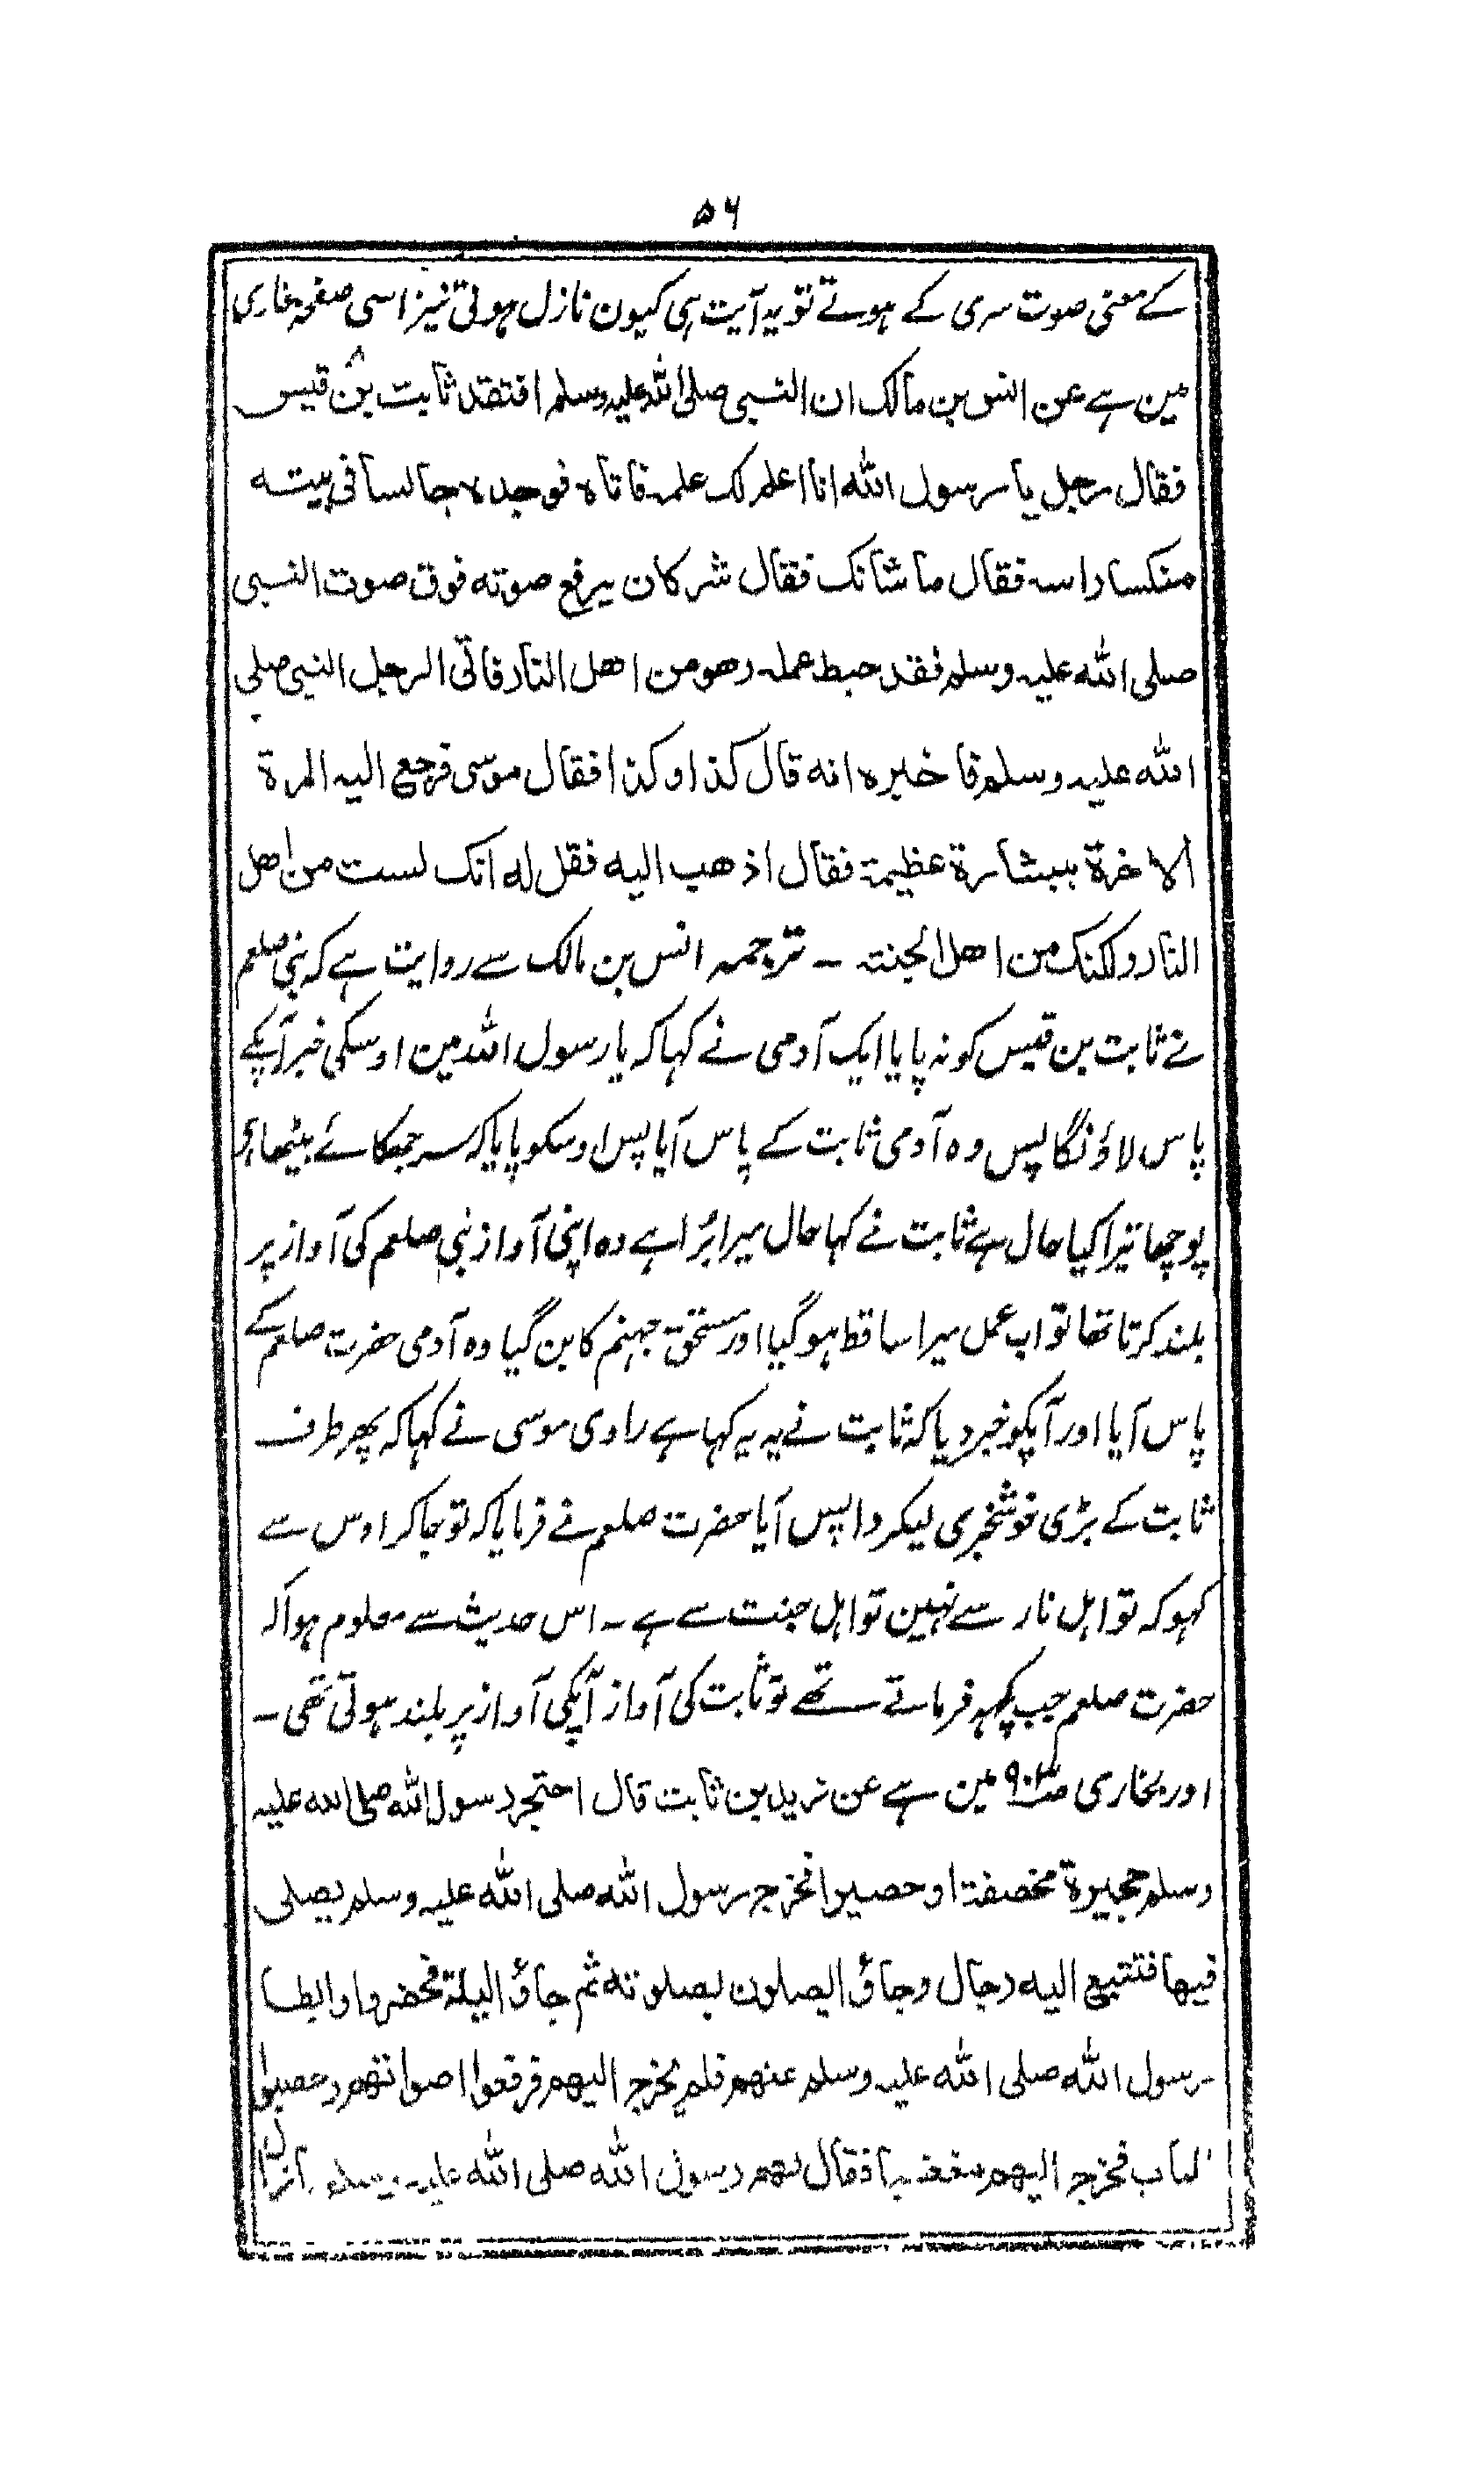 ۵۶
کے معنی صوت سری کے ہوتے تو یہ آیت ہی کیون نازل ہوتی نیز اسی صفحہ بخاری
مین ہے عن انس بن مالک ان النبی صلی اللہ علیہ وسلم افتقد ثابت بن قیس
فقال رجل یا رسول اللہ انا اعلم لک علمہ فاتاہ فوجدہ جالسا فی بیتہ
منکسا راسہ فقال ما شانک فقال شر کان یرفع صوتہ فوق صوت النبی
صلی اللہ علیہ وسلم فقد حبط عملہ وھو من اھل النار فاتی الرجل النبی صلی
اللہ علیہ وسلم فاخبرہ انہ قال کذا وکذا فقال موسی فرجع الیہ المرۃ
الاخرۃ ببشارۃ عظیمۃ فقال اذھب الیہ فقل لہ انک لست من اھل
النار ولکنک من اھل الجنتہ ۔ ترجمہ انس بن مالک سے روایت ہے کہ نبی صلعم
نے ثابت بن قیس کو نہ پایا ایک آدمی نے کہا کہ یا رسول اللہ مین اوسکی خبر آپکے
پاس لاؤنگا پس وہ آدمی ثابت کے پاس آیا پس اوسکو پایا کہ سر جھکائے بیٹھا ہی
پوچھا تیرا کیا حال ہے ثابت نے کہا حال میرا بُرا ہے وہ اپنی آواز نبی صلعم کی آواز پر
بلند کرتا تھا تو اب عمل میرا ساقط ہو گیا اور مستحق جہنم کا بن گیا وہ آدمی حضرت صلعم کے
پاس آیا اور آپکو خبر دیا کہ ثابت نے یہ یہ کہا ہے راوی موسی نے کہا کہ پھر طرف
ثابت کے بڑی خوشخبری لیکر واپس آیا حضرت صلعم نے فرمایا کہ تو جا کر اوس سے
کہو کہ تو اہل نار سے نہین تو اہل جنت سے ہے ۔ اس حدیث سے معلوم ہوا کہ
حضرت صلعم جب کچھہ فرماتے تھے تو ثابت کی آواز آپکی آواز پر بلند ہوتی تھی ۔
اور بخاری ص۹۰۳ مین ہے عن زید بن ثابت قال احتجر رسول اللہ صلی اللہ علیہ
وسلم حجیرۃ مخصفۃ او حصیرا فخرج رسول اللہ صلی اللہ علیہ وسلم یصلی
فیھا فتتبع الیہ رجال وجاؤ الیصلون بصلوتہ ثم جاؤ الیلۃ فحضروا وابطا
رسول اللہ صلی اللہ علیہ وسلم عنھم فلم یخرج الیھم فرفعوا اصواتھم وحصبوا
الباب فخرج الیھم مغضبا فقال لھم رسول اللہ صلی اللہ علیہ وسلم